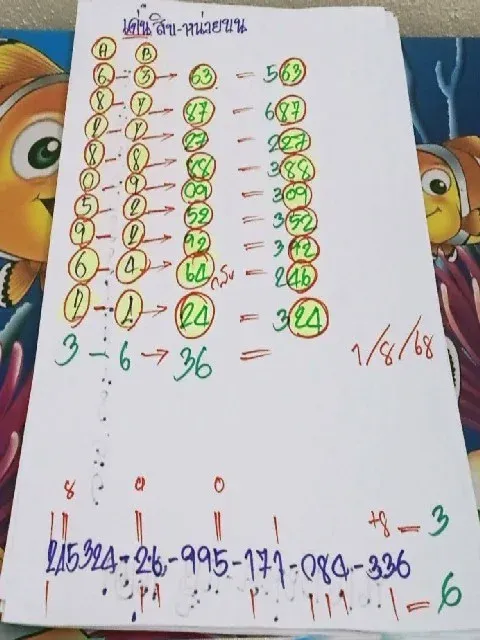 เด่นสิบ-หน่วยบน
A B
6 - 3 → 63 = 563
8 - 7 → 87 = 687
2 - 7 → 27 = 227
8 - 8 → 88 = 388
0 - 9 → 09 = 309
5 - 2 → 52 = 352
9 - 2 → 92 = 392
6 - 4 → 64 กลับ 246
2 - 4 → 24 = 324
3 - 6 → 36 = 1/8/68
8 9 0
+8 = 3
215324-26-995-171-084-336
= 6